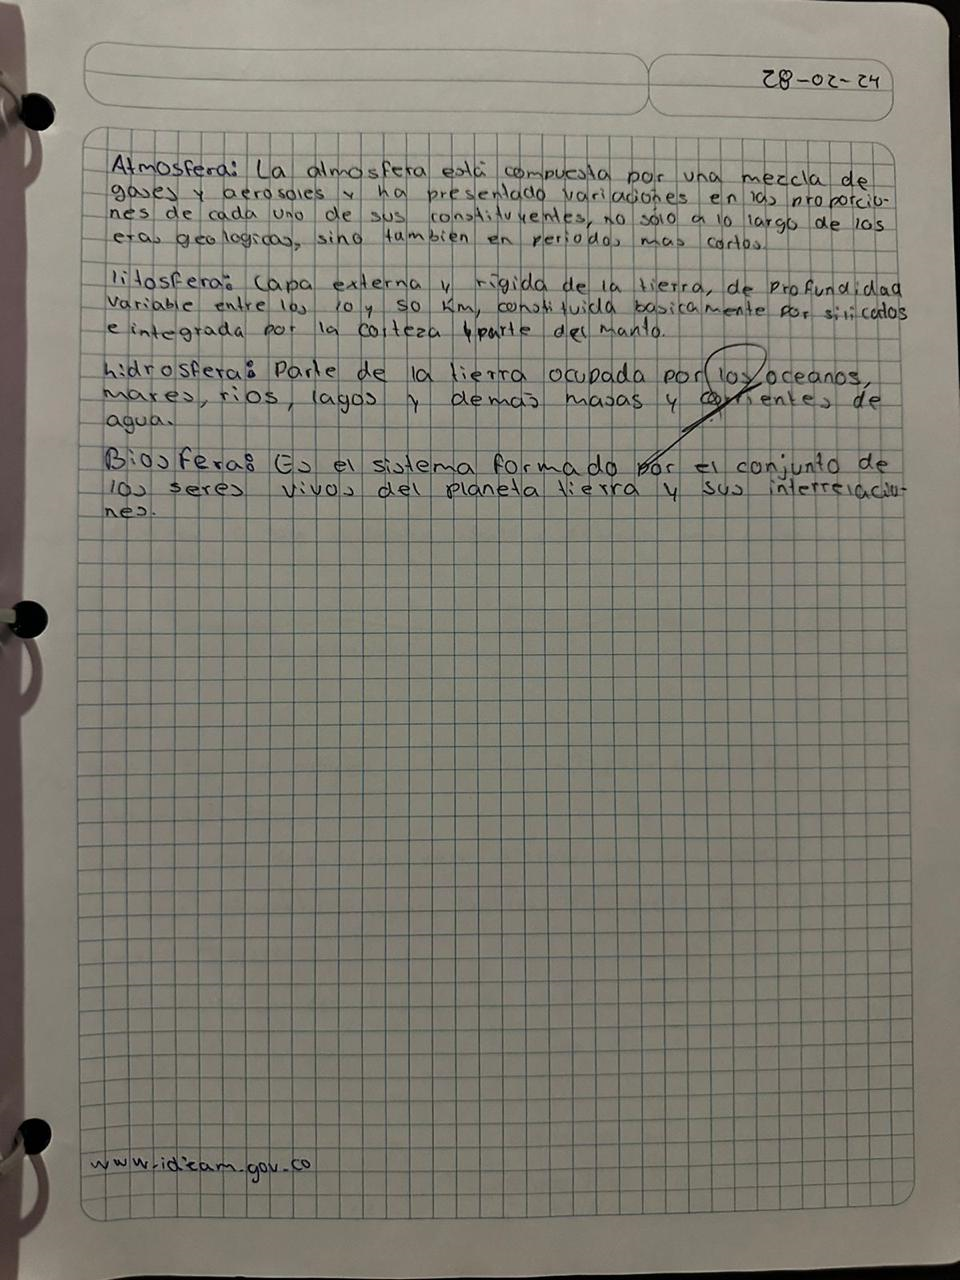 28-02-24
Atmosfera: La almosfera está compuesta por una mezcla de
gases y aerosoles y ha presentado variaciones en las proporcio-
nes de cada uno de sus constituyentes, no sólo a lo largo de las
eras geologicas, sino tambien en periodos mas cortos.
litosfera: Capa externa y rígida de la tierra, de profundidad
variable entre los 10 y 50 Km, constituida basicamente por silicatos
e integrada por la corteza y parte del manto.
hidrosfera: Parte de la tierra ocupada por los oceanos,
mares, rios, lagos y demás masas y corrientes de
agua.
Biosfera: Es el sistema formado por el conjunto de
los seres vivos del planeta tierra y sus interrelacio-
nes.
www.ideam.gov.co